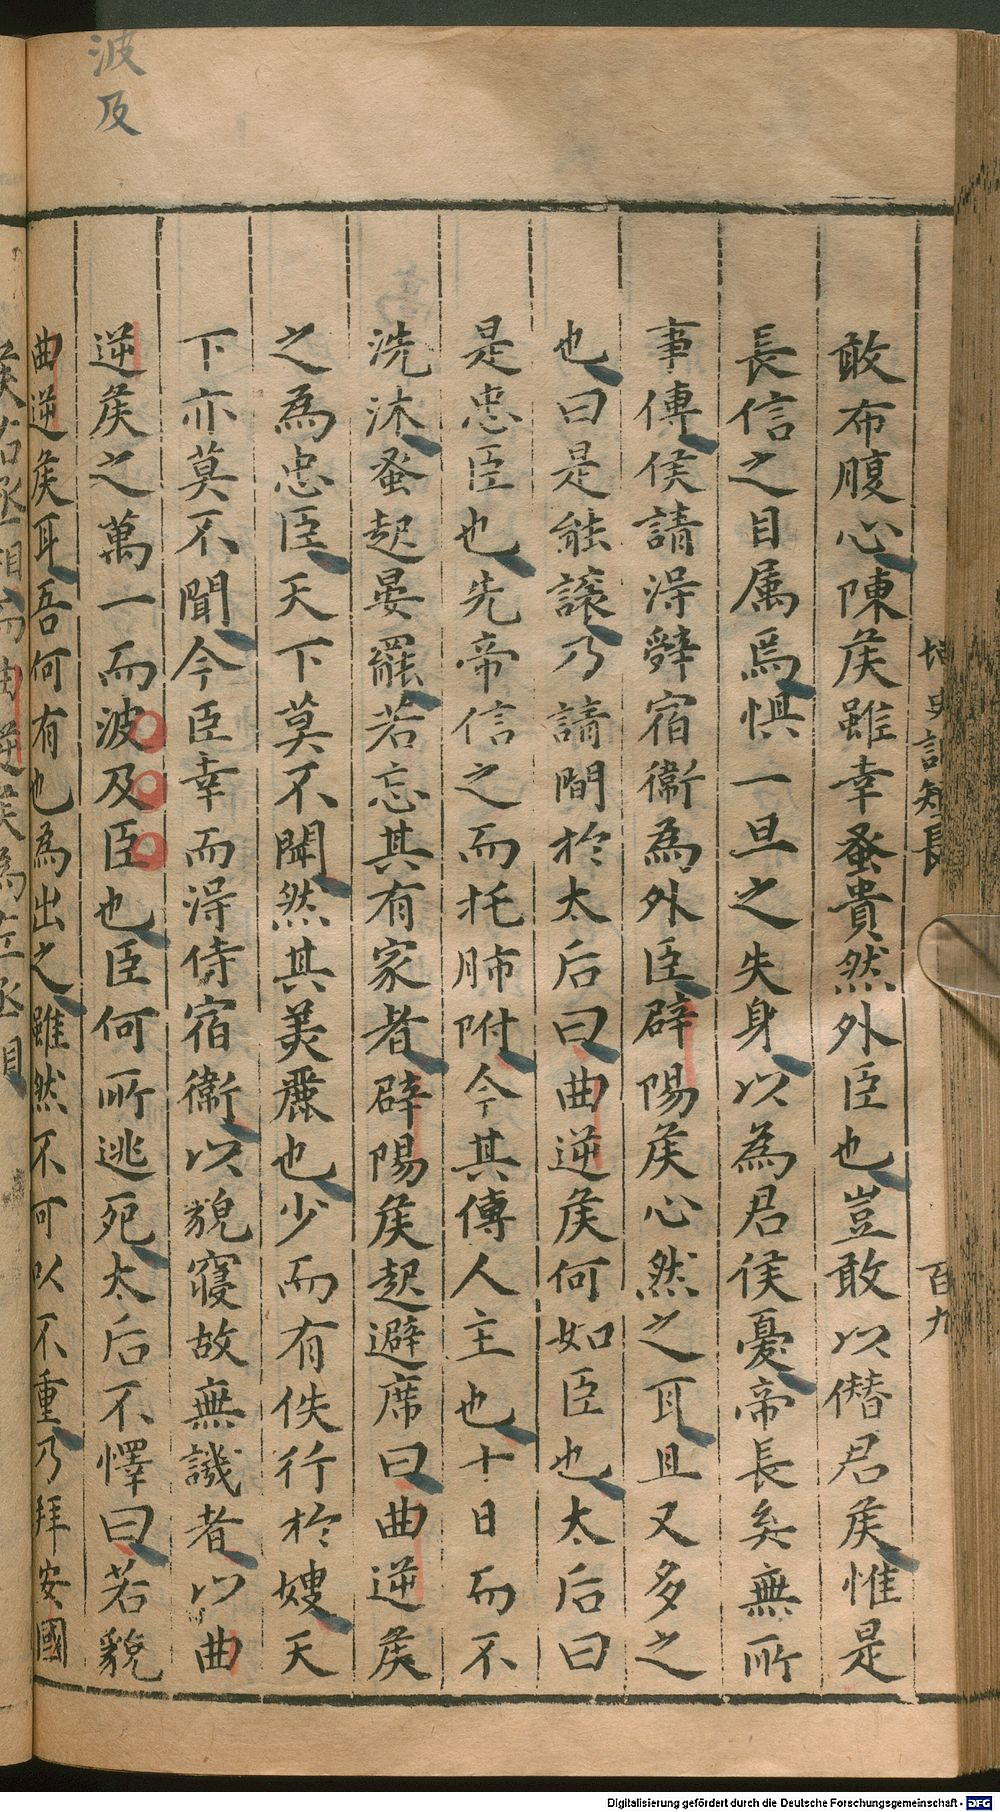 波及
敢布腹心陳侯雖幸蚤貴然外臣也豈敢以僣君侯惟是
長信之目属焉惧一旦之失身以為君侯憂帝長矣無所
事傅侯請淂辤宿衞為外臣辟陽侯心然之且又多之
也曰是䏻譲乃請間於太后曰曲逆侯何如臣也太后曰
是忠臣也先帝信之而托肺附今其傅人主也十日而不
洗沐蚤起晏罷若忘其有家者辟陽侯起避席曰曲逆侯
之為忠臣天下莫不聞然其美麗也少而有佚行於嫂天
下亦莫不聞今臣幸而淂侍宿衞以貌寢故無譏者以曲
逆侯之萬一而波及臣也臣何所逃死太后不懌曰若貌
曲逆侯耳吾何有也為出之雖然不可以不重乃拜安國
史記短長
百九
Digitalisierung gefördert durch die Deutsche Forschungsgemeinschaft - DFG